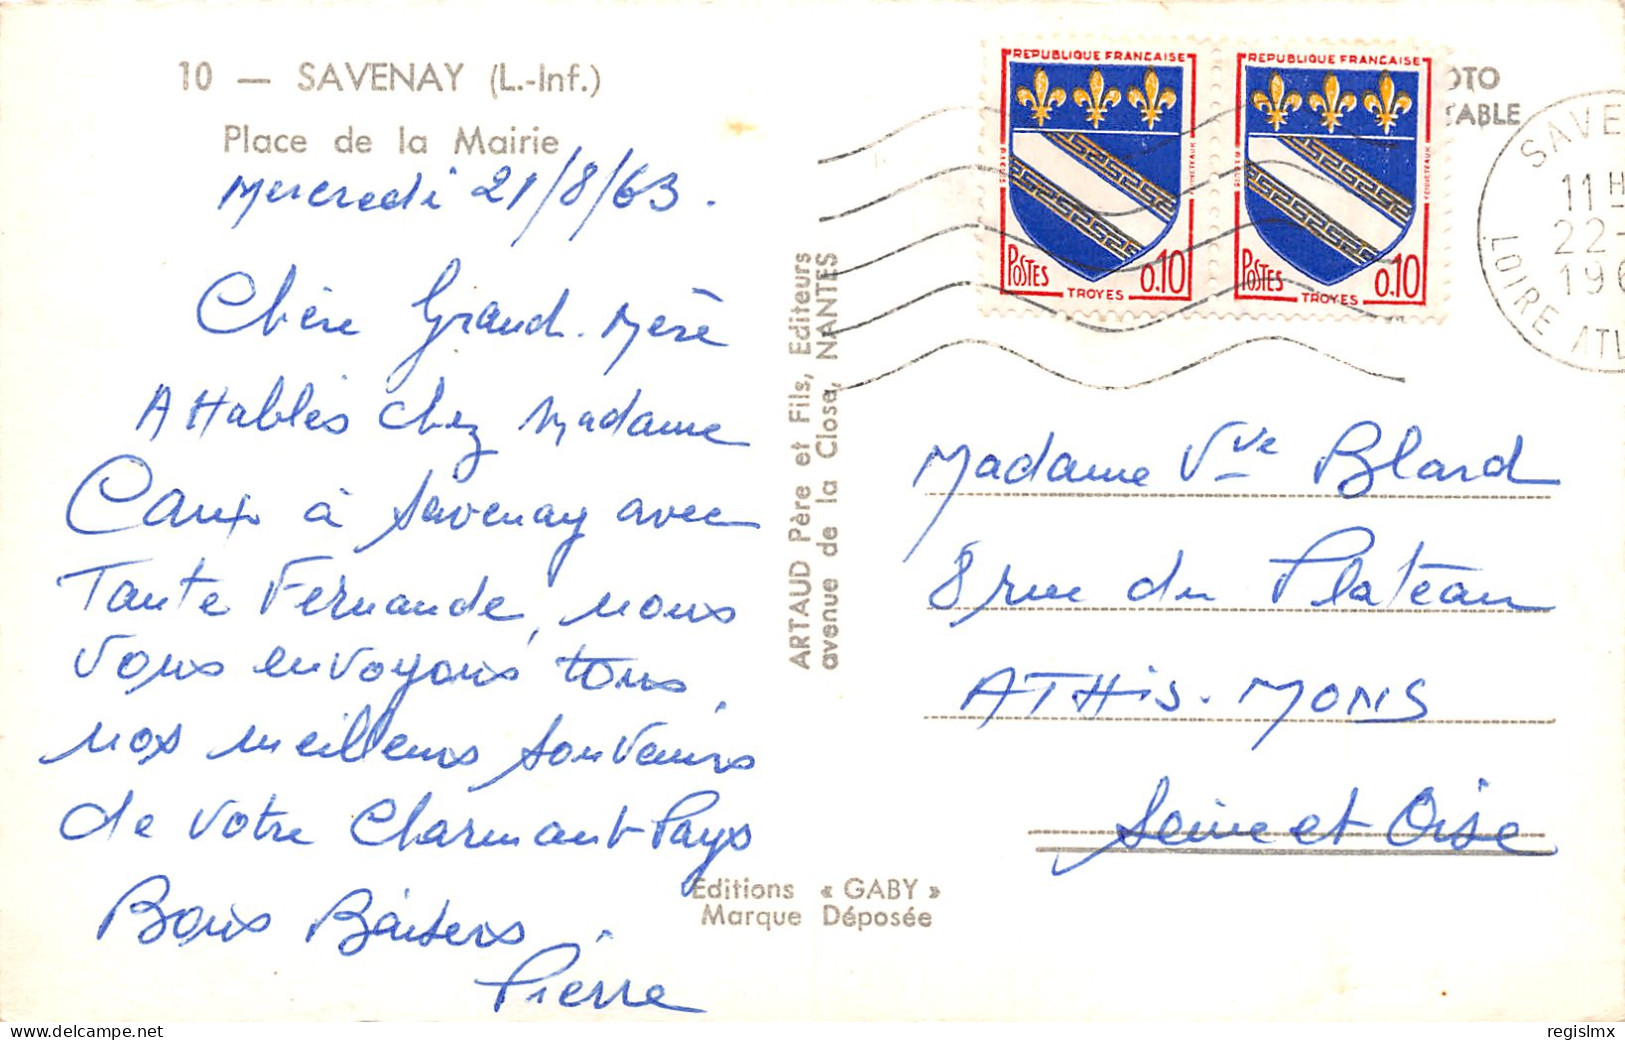 10 — SAVENAY (L.-Inf.)
Place de la Mairie
Mercredi 21/8/63.
Chère Grand-Mère
Attablés chez Madame
Caux à Savenay avec
Tante Fernande, nous
vous envoyons tous,
nos meilleurs souvenirs
de votre Charmant Pays
Bons Baisers
Pierre
ARTAUD Père et Fils, Editeurs
avenue de la Close, NANTES
Editions « GABY »
Marque Déposée
REPUBLIQUE FRANÇAISE
POSTES 0.10
TROYES
REPUBLIQUE FRANÇAISE
POSTES 0.10
TROYES
OTO
TABLE
SAVE
11 H
22-
196
LOIRE ATL
Madame Vve Blard
8 rue du Plateau
ATHIS-MONS
Seine et Oise
Delcampe.net
regislmx